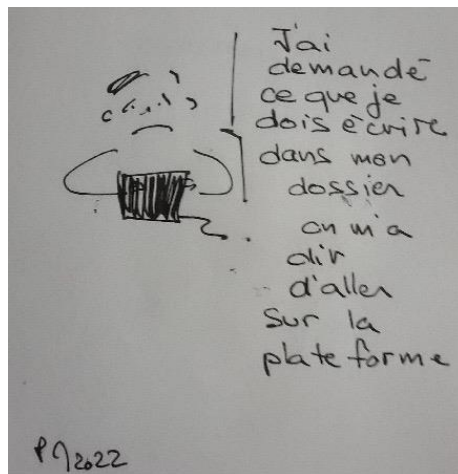 J'ai
demandé
ce que je
dois écrire
dans mon
dossier
on m'a
dir
d'aller
sur la
plateforme
PJ 2022